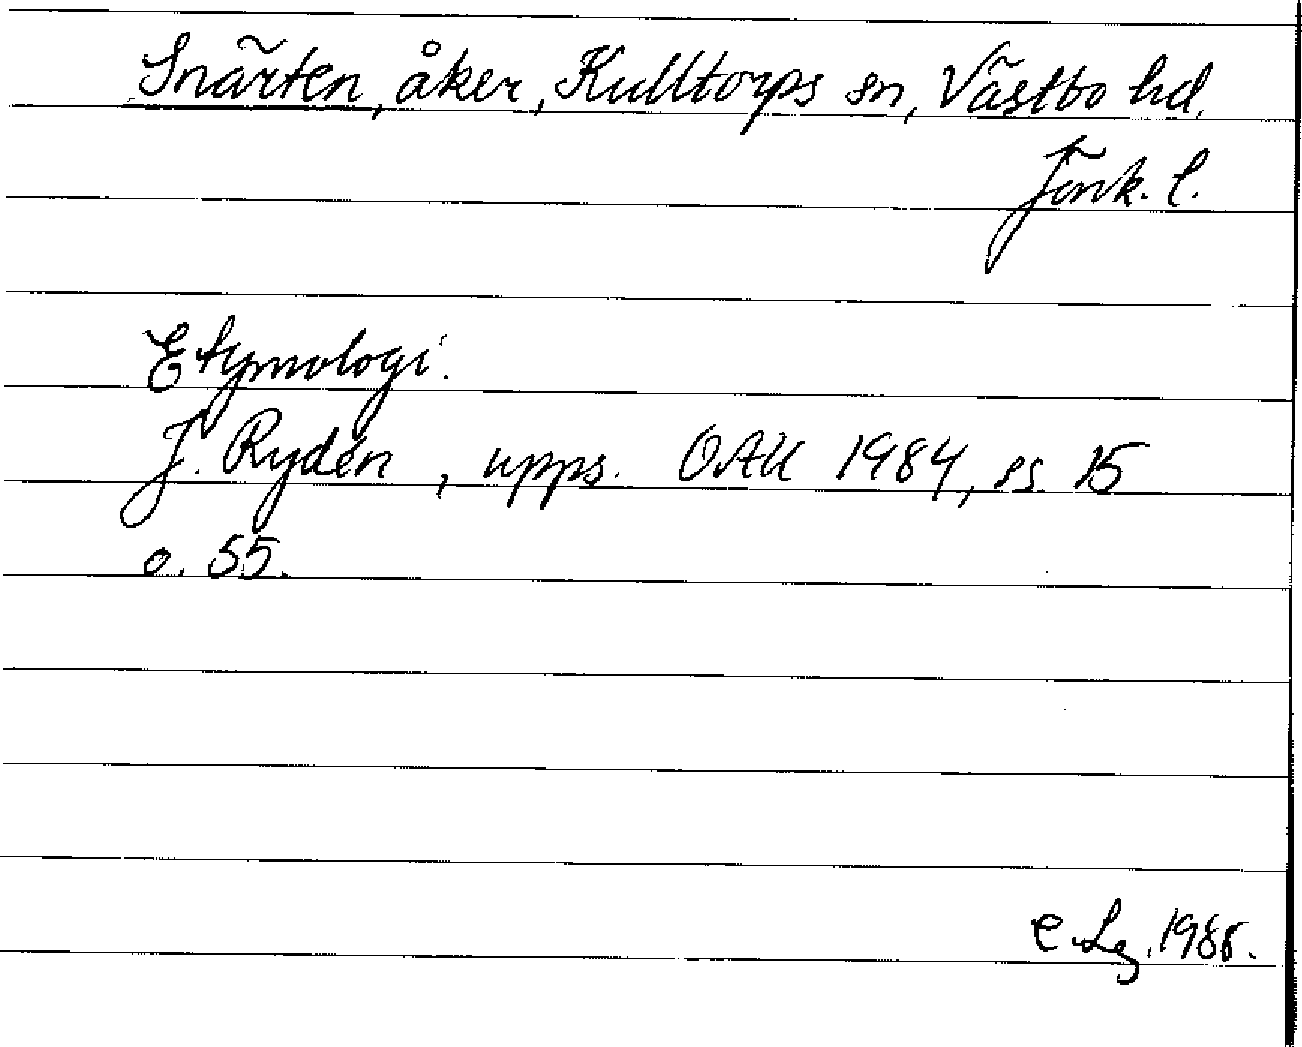 Snärten, åker, Kulltorps sn, Västbo hd.
Jönk. l.
Etymologi.
J. Rydén, upps. OAU 1984, ss. 15
o. 55.
C. Lg. 1985.